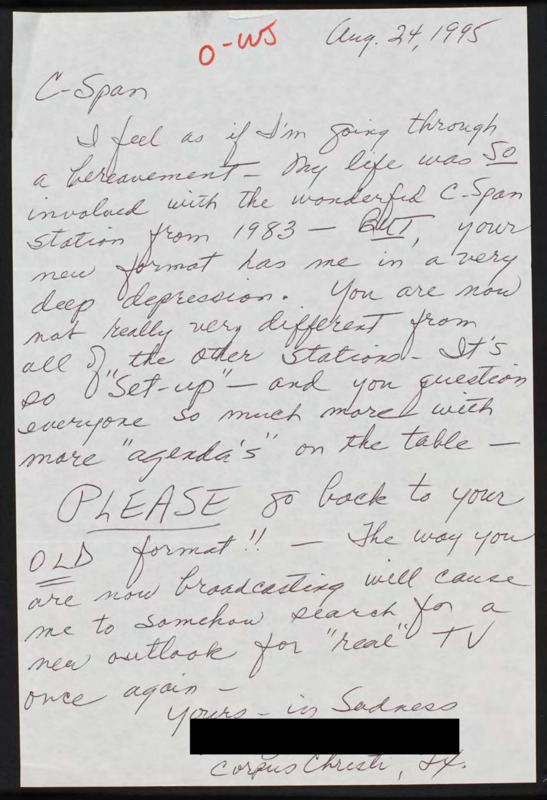 O-WJ
Aug. 24, 1995
C-Span
I feel as if I'm going through
a bereavement - My life was SO
involved with the wonderful C-Span
station from 1983 - BUT, your
new format has me in a very
deep depression. You are now
not really very different from
all of the other stations - It's
so "Set-up" - and you question
everyone so much more with
more "agenda's" on the table -
PLEASE go back to your
OLD format!! - The way you
are now broadcasting will cause
me to somehow search for a
new outlook for "real" TV
once again -
Yours - in Sadness
Corpus Christi, TX.